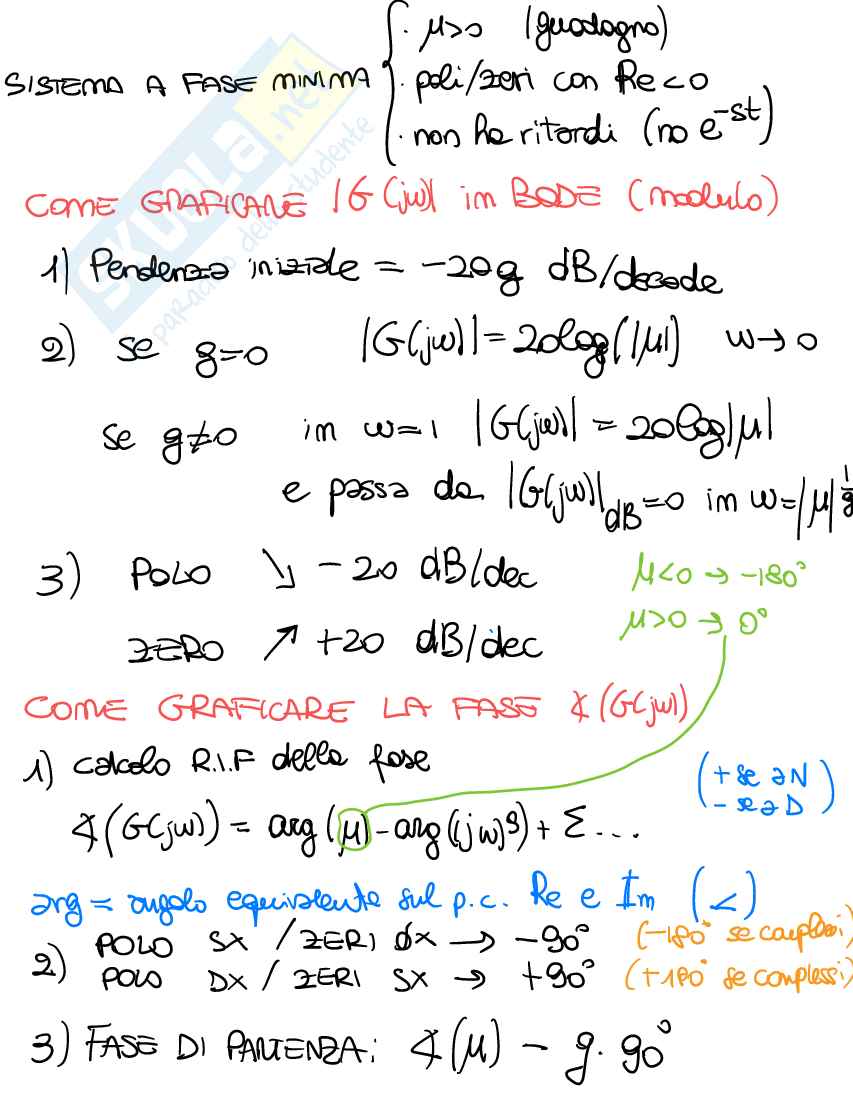 SISTEMA A FASE MINIMA { · μ>0 (guadagno)
· poli/zeri con Re<0
· non ha ritardi (no e^-st)
SKUOLA.net
paradiso dello studente
COME GRAFICARE |G(jω)| in BODE (modulo)
1) Pendenza iniziale = -20g dB/decade
2) se g=0 |G(jω)| = 20log(|μ|) ω→0
se g≠0 in ω=1 |G(jω)| = 20log|μ|
e passa da |G(jω)|dB=0 in ω=|μ|^1/g
3) POLO ↘ -20 dB/dec
μ<0 → -180°
ZERO ↗ +20 dB/dec
μ>0 → 0°
COME GRAFICARE LA FASE ∡(G(jω))
1) calcolo R.I.F della fase
(+ se a N
- se a D)
∡(G(jω)) = arg(μ) - arg((jω)^g) + Σ ...
arg = angolo equivalente sul p.c. Re e Im (∠)
2) POLO SX / ZERI DX → -90° (-180° se complessi)
POLO DX / ZERI SX → +90° (+180° se complessi)
3) FASE DI PARTENZA: ∡(μ) - g · 90°